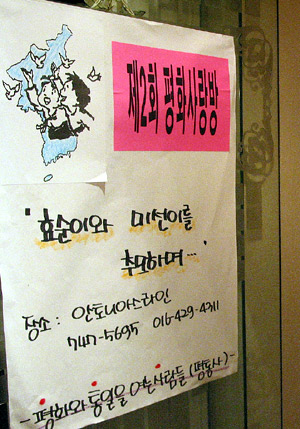 제2회 평화사랑방
"효순이와 미선이를
추모하며..."
장소 : 안토니아스라인
747-5695 016-429-4211
-평화와 통일을 여는 사람들 (평통사)-